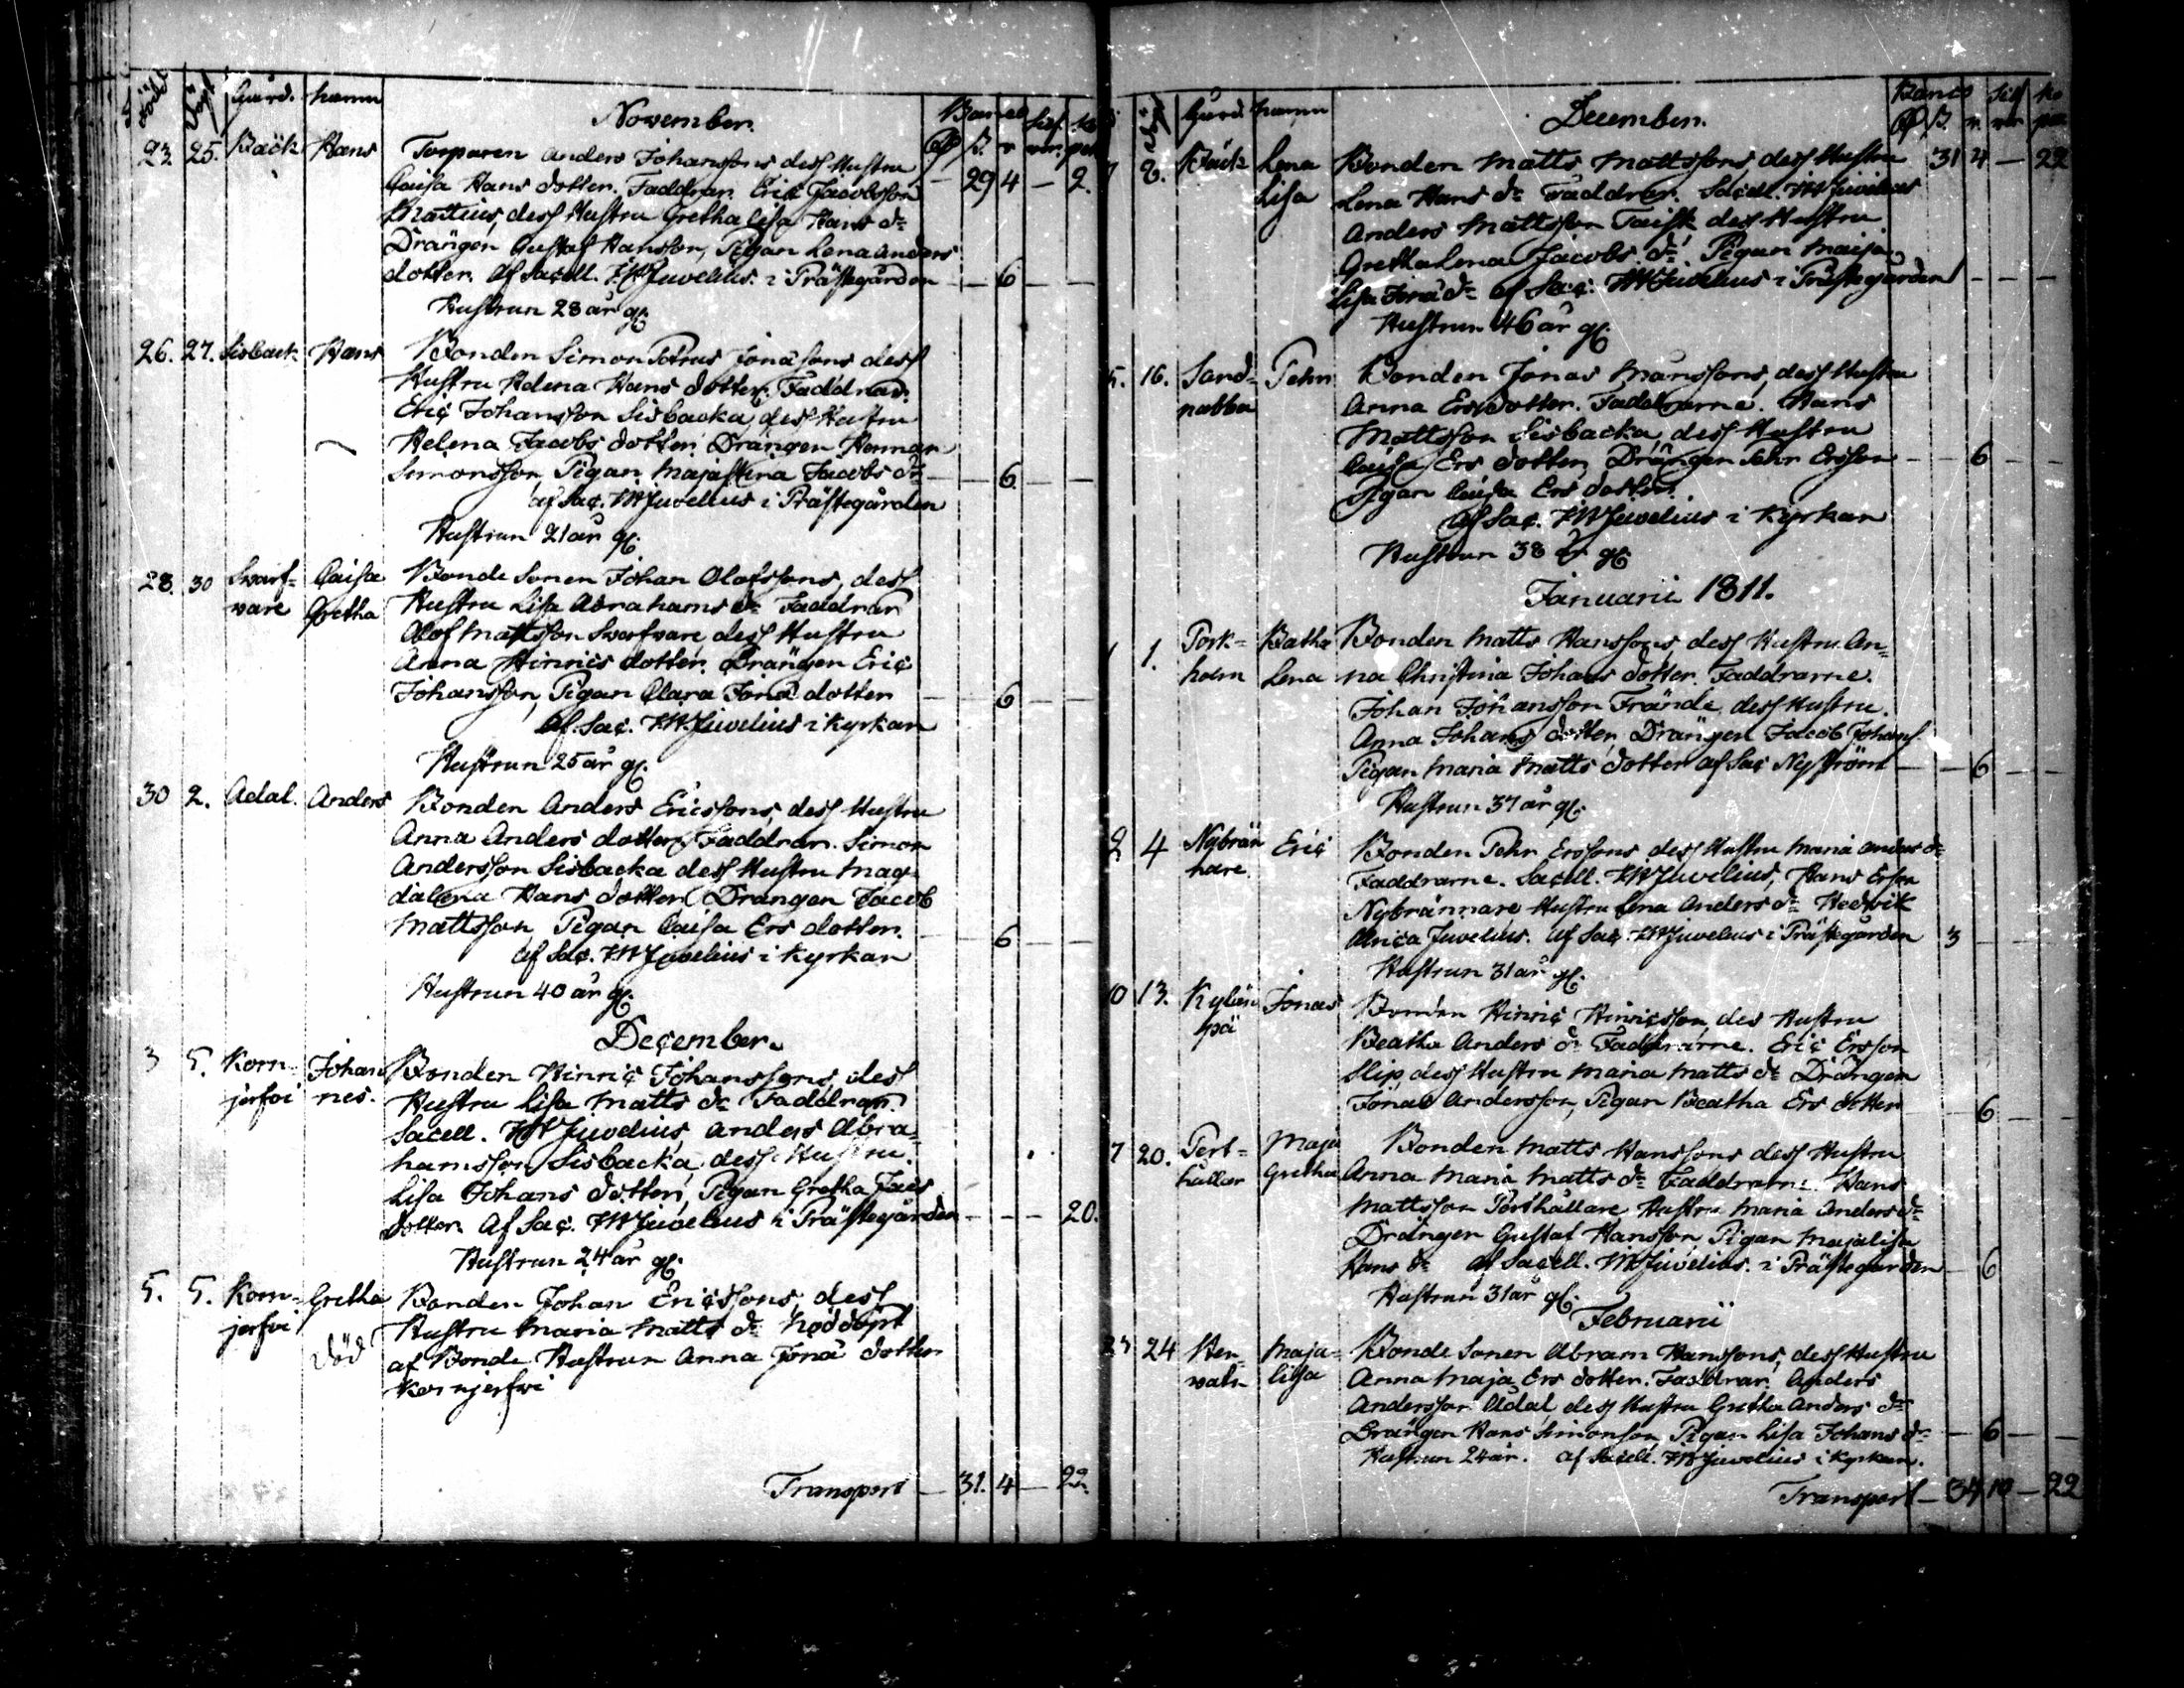 Född Döpt Gård. namn November. Banco Silf. Ko
R. ß. r. mt. par
23. 25. Back Hans Torparen Anders Johanssons dess Hustru
Caisa Hans dotter. Faddrar. Eric Jacobsson — 29 4 — 2.
Mattius, dess Hustru Gretha Lisa Hans dr
Drängen Gustaf Hansson, Pigan Lena Anders
dotter. Af Sacell. JWJuvelius. i Prästegården — — 6 — —
Hustrun 28 år gl.
26. 27. Sisback Hans Bonden Simon Petrus Jonasons dess
Hustru Helena Hans dotter. Faddrar.
Eric Johansson Sisbacka, dess Hustru
Helena Jacobs dotter. Drängen Herman
Simonsson, Pigan Majastina Jacobs dr — — 6. — —
af Sac. JWJuvelius i Prästegården
Hustrun 21 år gl.
28. 30 Swarf= Caisa Bonde Sonen Johan Olofssons, dess
vare Gretha Hustru Lisa Abrahams dr Faddrar
Olof Mattsson Swarfvare, dess Hustru
Anna Hinrics dotter. Drängen Eric
Johansson, Pigan Clara Jona dotter — — 6 — —
af. Sac. JWJuvelius i Kyrkan
Hustrun 25 år gl.
30 2. Adal. Anders Bonden Anders Ericssons, dess Hustru
Anna Anders dotter. Faddrar. Simon
Andersson Sisbacka dess Hustru Mag=
dalena Hans dotter. Drängen Jacob
Mattsson Pigan Caisa Ers dotter. — — 6 — —
af Sac. JWJuvelius i Kyrkan
Hustrun 40 år gl.
December.
3 5. Korn= Johan Bonden Hinric Johanssons, dess
jerfvi nes. Hustru Lisa Matts dr Faddrar.
Sacell. JWJuvelius, Anders Abra=
hamsson Sisbacka, dess Hustru.
Lisa Johans dotter, Pigan Gretha Jacs
dotter. Af Sac. JWJuvelius i Prästegården — — — 20.
Hustrun 24 år gl.
5. 5. Korn= Gretha Bonden Johan Ericssons, dess
jerfvi död Hustru Maria Matts dr Nöddöpt
af Bonde Hustrun Anna Jona dotter
Kornjerfvi
Transport — 31. 4 — 22.
Döpt Gård namn December. Banco Silf Ko
R ß. r. mt par
7 8. Back Lena Bonden Matts Mattssons, dess Hustru 31 4 — 22
Lisa Lena Hans dr Faddrar. Sacell. JWJuvelius
Anders Mattsson Taisk dess Hustru
Gretha Lena Jacobs dr. Pigan Maija
Lisa Jona dr af Sac. JWJuvelius i Prästegården — — —
Hustrun 46 år gl.
5. 16. Sand= Pehr Bonden Jonas Månssons, dess Hustru
nabba Anna Ersdotter. Faddrarne. Hans
Mattsson Sisbacka, dess Hustru
Caisa Ers dotter, Drängen Pehr Ersson — — 6 — —
Pigan Caisa Ers dotter.
Af Sac. JWJuvelius i Kyrkan
Hustrun 38 år gl.
Januarii 1811.
1 1. Pork= Beatha Bonden Matts Hanssons, dess Hustru An=
ham Lena na Christina Johans dotter. Faddrarne.
Johan Johansson Frände, dess Hustru.
Anna Johans dotter Drängen Jacob Johans.
Pigan Maria Matts dotter af Sac Nyström — — 6 — —
Hustrun 37 år gl.
2 4 Nybrän Eric Bonden Pehr Erssons dess Hustru Maria Anders dr
nare. Faddrarne. Sacell. JWJuvelius, Hans Ersson
Nybrännare Hustru Lena Anders dr Hedvik
Ulrica Juvelius. af Sac. JWJuvelius i Prästegården 3 — — —
Hustrun 31 år gl.
10 13. Jonas Bonden Hinric Hinricsson, des Hustru
Beatha Anders dr Faddrarne. Eric Ersson
Slip dess Hustru Maria Matts dr Drängen
Jonas Andersson, Pigan Beatha Ers dotter — 6 — —
7 20. Pert= Maja Bonden Matts Hanssons dess Hustru
hållar Gretha Anna Maria Matts dr Faddrarne. Hans
Mattsson Perthållare Hustru Maria Anders dr
Drängen Gustaf Hansson Pigan Majalisa
Hans dr af Sacell. JWJuvelius. i Prästegården — 6 — —
Hustrun 31 år gl.
Februarii
23 24 Maja= Bonde Sonen Abram Hanssons, dess Hustru
lisa Anna Maja Ers dotter. Faddrar. Anders
Andersson Adal, dess Hustru Gretha Anders dr
Drängen Hans Simonson, Pigan Lisa Johans dr — 6 — —
Hustrun 24 år. af Sacell. JWJuvelius i Kyrkan.
Transport — 34 10 — 22